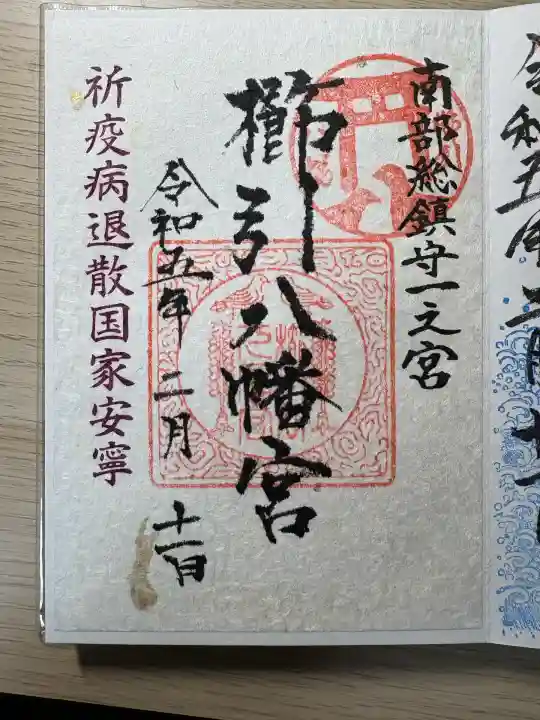 南部総鎮守一之宮
櫛引八幡宮
令和五年二月十一日
祈疫病退散国家安寧